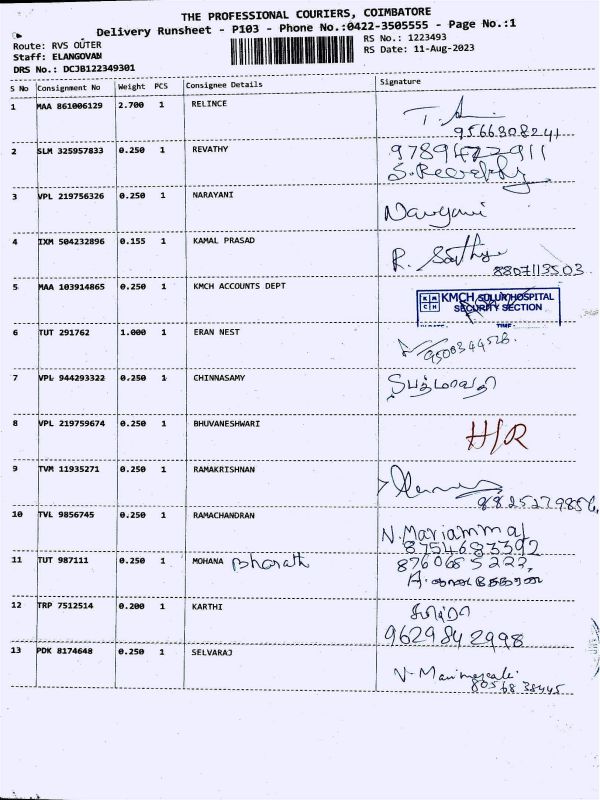 THE PROFESSIONAL COURIERS, COIMBATORE
Delivery Runsheet - P103 - Phone No.:0422-3505555 - Page No.:1
Route: RVS OUTER
RS No.: 1223493
Staff: ELANGOVAN
RS Date: 11-Aug-2023
DRS No.: DCJB122349301
S No Consignment No Weight PCS Consignee Details Signature
1 MAA 861006129 2.700 1 RELINCE
9566308241
2 SLM 325957833 0.250 1 REVATHY 9789422911
S. Revathy
3 VPL 219756326 0.250 1 NARAYANI
Narayani
4 IXM 504232896 0.155 1 KAMAL PRASAD
R. Sathya
8807113503
5 MAA 103914865 0.250 1 KMCH ACCOUNTS DEPT
KMCH SULUR HOSPITAL
SECURITY SECTION
DATE TIME
6 TUT 291762 1.000 1 ERAN NEST
9500344528
7 VPL 944293322 0.250 1 CHINNASAMY
பத்மாவதி
8 VPL 219759674 0.250 1 BHUVANESHWARI
H/R
9 TVM 11935271 0.250 1 RAMAKRISHNAN
9825279856
10 TVL 9856745 0.250 1 RAMACHANDRAN
N. Mariammal
8754683392
11 TUT 987111 0.250 1 MOHANA Bharath 8760685222,
A.
12 TRP 7512514 0.200 1 KARTHI
9629842998
13 PDK 8174648 0.250 1 SELVARAJ
N.
8056838445